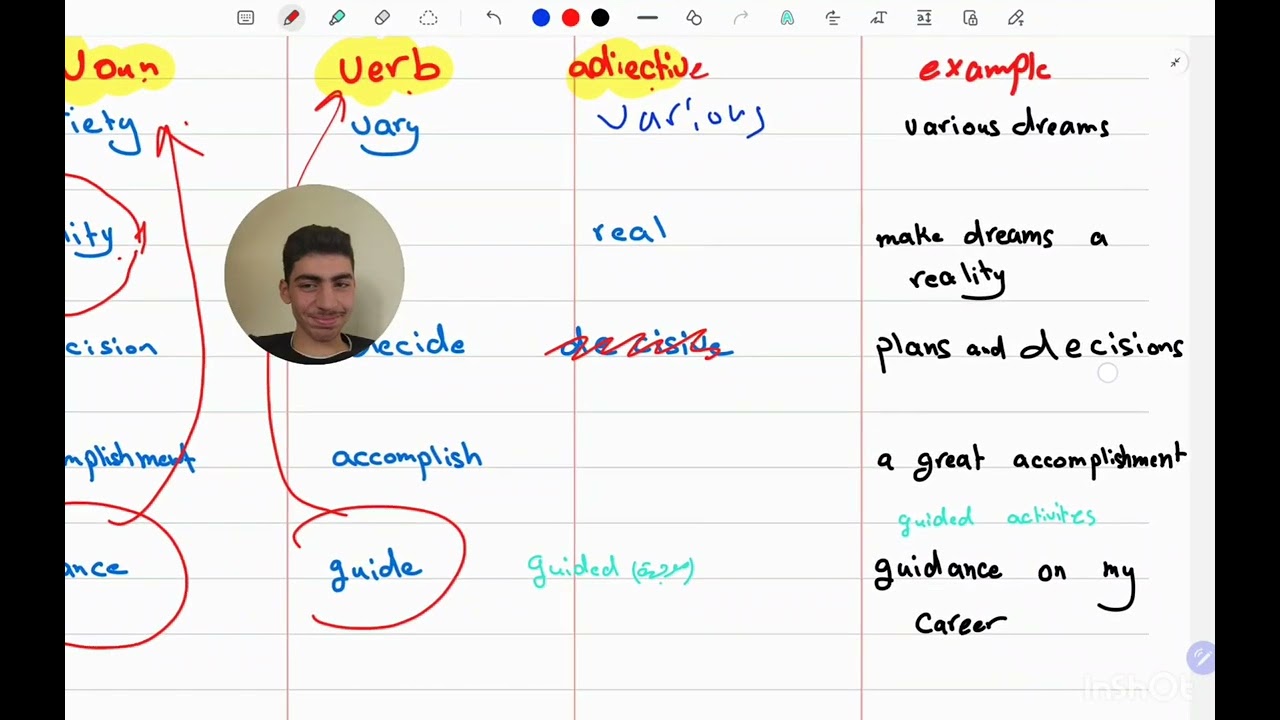 noun verb adjective example
riety vary various various dreams
lity real make dreams a
reality
cision decide decisive plans and decisions
mplishment accomplish a great accomplishment
guided activites
ance guide guided (موجهة) guidance on my
career
InShOt